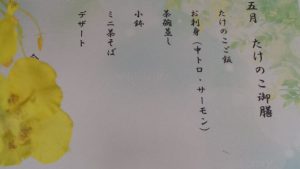 五月　たけのこ御膳
たけのこご飯
お刺身(中トロ・サーモン)
茶碗蒸し
小鉢
ミニ茶そば
デザート